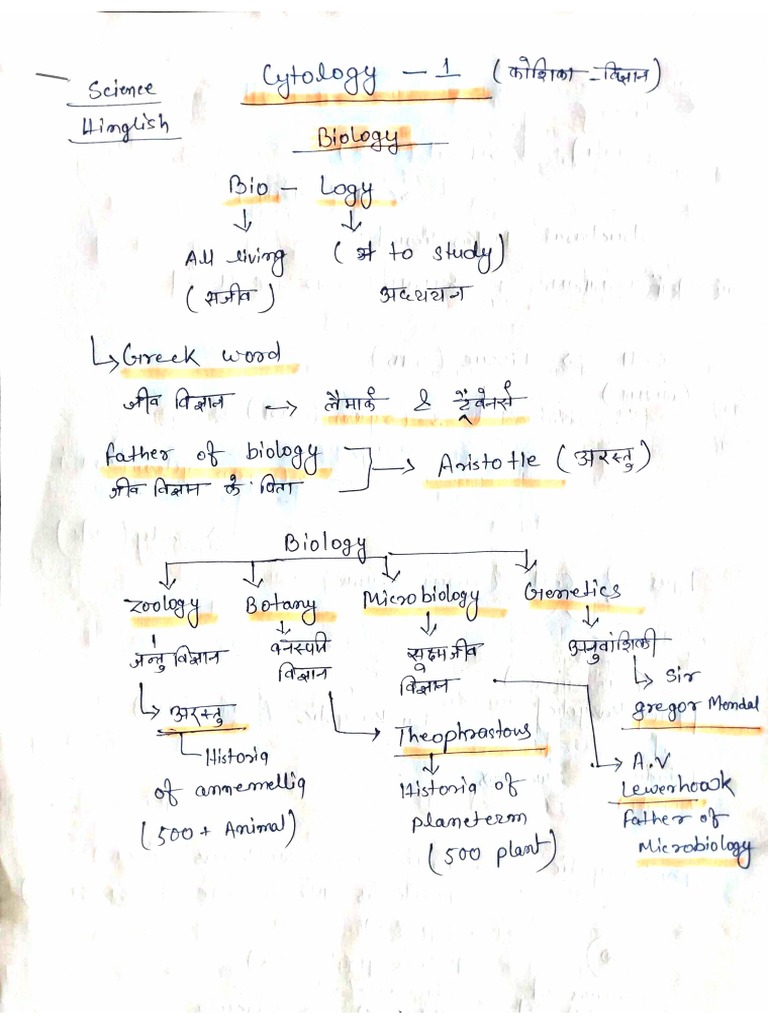 Science
Hinglish
Cytology - 1 (कोशिका - विज्ञान)
Biology
Bio - Logy
All living (to study)
(सजीव) अध्ययन
Greek word
जीव विज्ञान → लैमार्क & ट्रैवेनर्स
father of biology → Aristotle (अरस्तु)
जीव विज्ञान के पिता
Biology
Zoology Botany Microbiology Genetics
जन्तु विज्ञान वनस्पति सूक्ष्म जीव अनुवांशिकी
विज्ञान विज्ञान
अरस्तु
Sir
gregor Mendal
Historia
of annemellia
(500 + Animal)
Theophrastous
Historia of
planeterm
(500 plant)
A.V
Lewenhoak
father of
Microbiology